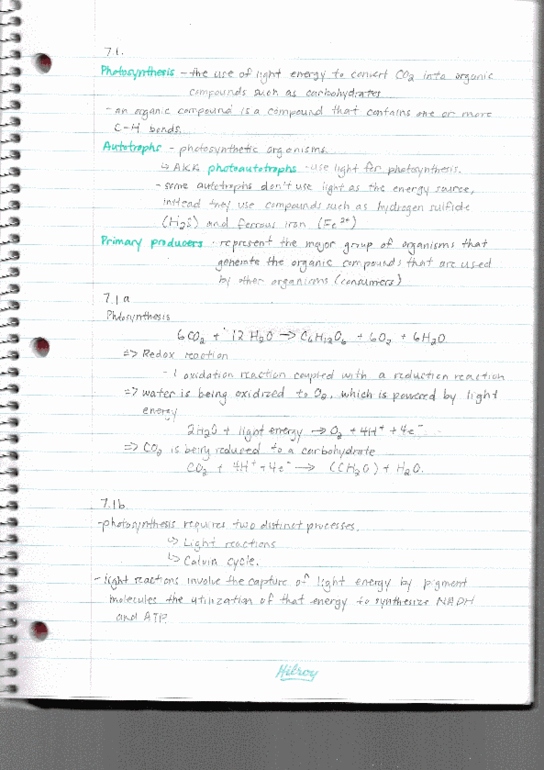 7.1.
Photosynthesis - the use of light energy to convert CO₂ into organic
compounds such as carbohydrates
- an organic compound is a compound that contains one or more
C-H bonds.
Autotrophs - photosynthetic organisms.
↳ AKA photoautotrophs - use light for photosynthesis.
- some autotrophs don't use light as the energy source,
instead they use compounds such as hydrogen sulfide
(H₂S) and ferrous iron (Fe²⁺)
Primary producers - represent the major group of organisms that
generate the organic compounds that are used
by other organisms (consumers)
7.1a
Photosynthesis
6CO₂ + 12H₂O → C₆H₁₂O₆ + 6O₂ + 6H₂O
=> Redox reaction
- 1 oxidation reaction coupled with a reduction reaction
=> water is being oxidized to O₂, which is powered by light
energy
2H₂O + light energy → O₂ + 4H⁺ + 4e⁻
=> CO₂ is being reduced to a carbohydrate
CO₂ + 4H⁺ + 4e⁻ → (CH₂O) + H₂O.
7.1b
- photosynthesis requires two distinct processes.
↳ Light reactions
↳ Calvin cycle.
- light reactions involve the capture of light energy by pigment
molecules the utilization of that energy to synthesize NADH
and ATP
Hilroy